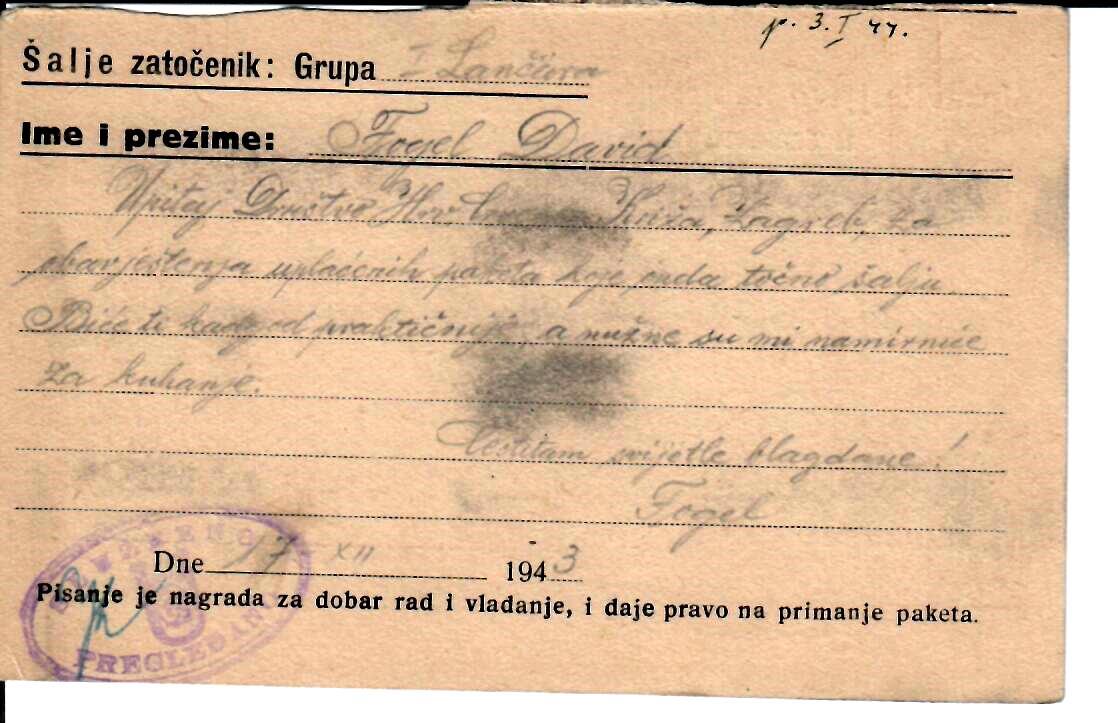 p. 3. I 44.
Šalje zatočenik: Grupa I Lančara
Ime i prezime: Fogel David
Upitaj Društvo Križa, Zagreb, za
obavještenja uplaćenih paketa koje onda točno šalju.
Biće ti kadgod praktičnije a nužne su mi namirnice
za kuhanje.
Čestitam svijetle blagdane!
Fogel
Dne 17 XII 1943
Pisanje je nagrada za dobar rad i vladanje, i daje pravo na primanje paketa.
PREGLEDANO